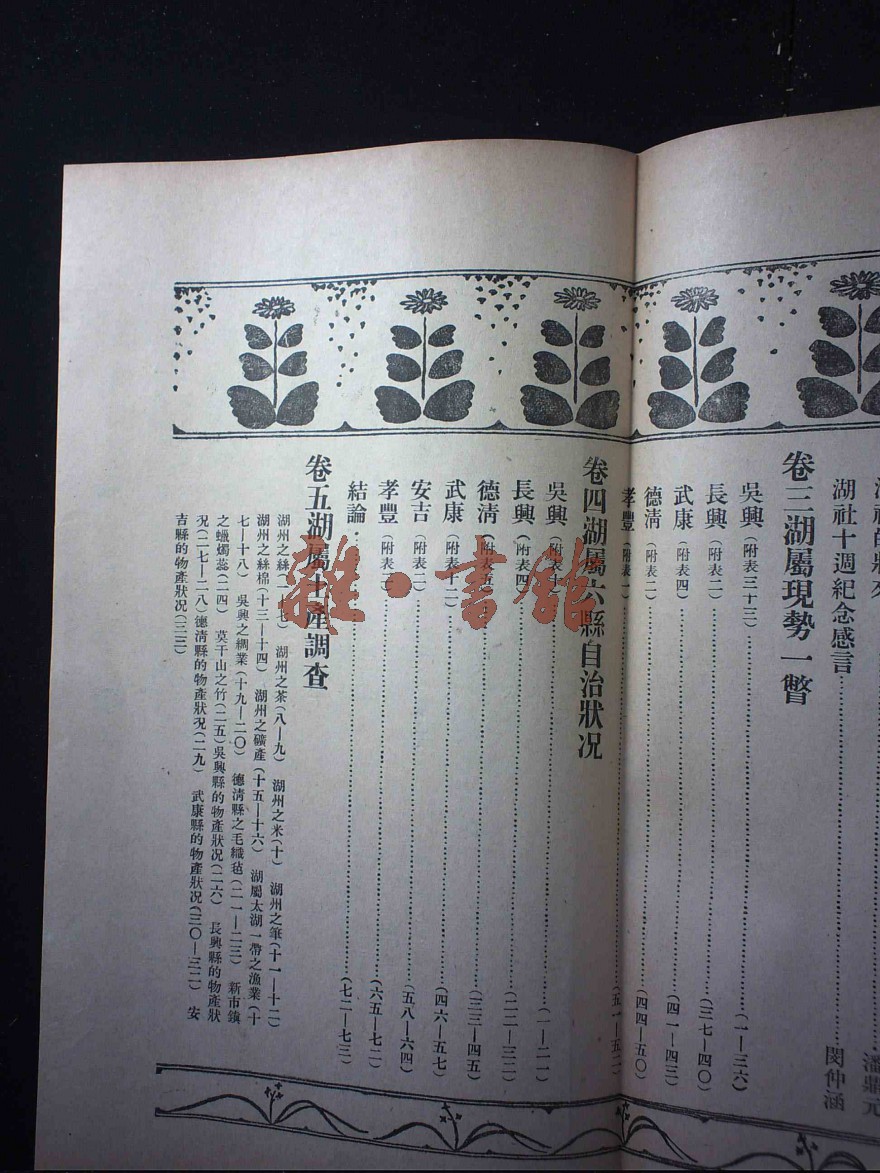 湖社十週紀念感言 閔仲涵
卷三湖屬現勢一瞥
吳興(附表三十三) (一—三六)
長興(附表二) (三七—四〇)
武康(附表四) (四一—四三)
德淸(附表二) (四四—五〇)
孝豐(附表一) (五一—五二)
卷四湖屬六縣自治狀況
吳興(附表十 (一—二一)
長興(附表四 (二二—三二)
德淸(附表五 (三三—四五)
武康(附表十二) (四六—五七)
安吉(附表二) (五八—六四)
孝豐(附表二) (六五—七二)
結論 (七二—七三)
卷五湖屬土產調查
湖州之絲(一—七) 湖州之茶(八—九) 湖州之米(十) 湖州之筆(十一—十二)
湖州之絲棉(十三—十四) 湖州之礦產(十五—十六) 湖屬太湖一帶之漁業(十
七—十八) 吳興之綢業(十九—二〇) 德淸縣之毛織毡(二一—二三) 新市鎮
之蠟燭蕊(二四) 莫干山之竹(二五)吳興縣的物產狀況(二六) 長興縣的物產狀
況(二七—二八)德淸縣的物產狀況(二九) 武康縣的物產狀況(三〇—三二) 安
吉縣的物產狀況(三三)
雜·書館